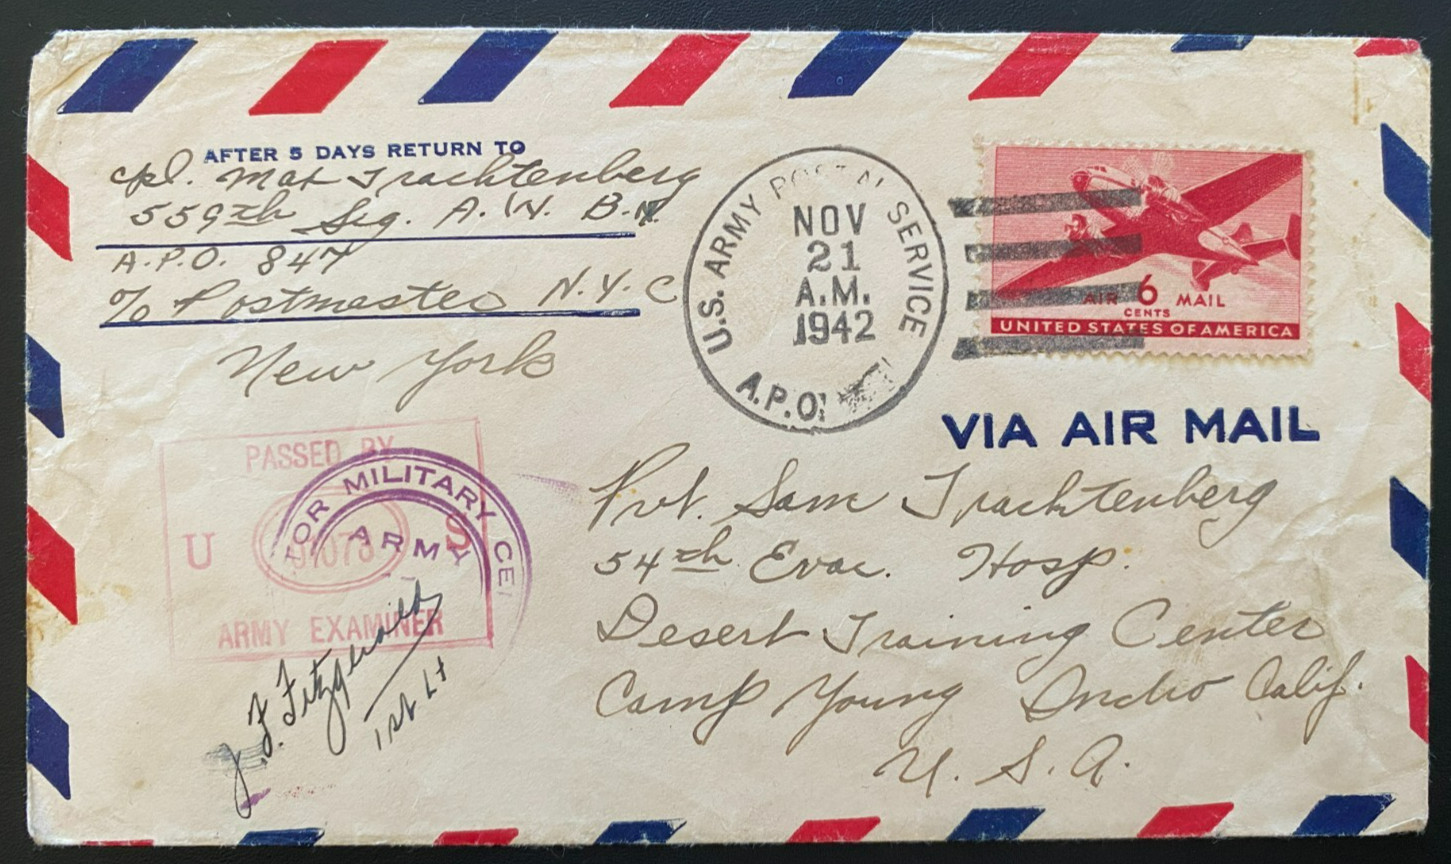 AFTER 5 DAYS RETURN TO
Cpl. Max Trachtenberg
559th Sig. A. W. Bn.
A.P.O. 847
c/o Postmaster N.Y.C
New York
U.S. ARMY POSTAL SERVICE
NOV
21
A.M.
1942
A.P.O.
AIR 6 MAIL
CENTS
UNITED STATES OF AMERICA
VIA AIR MAIL
PASSED BY
U S
ARMY EXAMINER
FOR MILITARY CE
ARMY
J. F. Fitzgerald
1st Lt
Pvt. Sam Trachtenberg
54th Evac. Hosp.
Desert Training Center
Camp Young Indio Calif.
U. S. A.